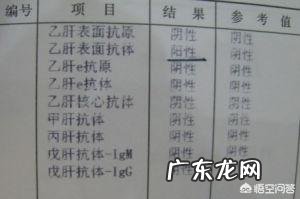 编号 项目 结果 参考值
乙肝表面抗原 阴性 阴性
乙肝表面抗体 阳性 阴性
乙肝e抗原 阴性 阴性
乙肝e抗体 阴性 阴性
乙肝核心抗体 阴性 阴性
甲肝抗体 阴性 阴性
丙肝抗体 阴性 阴性
戊肝抗体-IgM 阴性
戊肝抗体-IgG
广东龙网
悟空问答